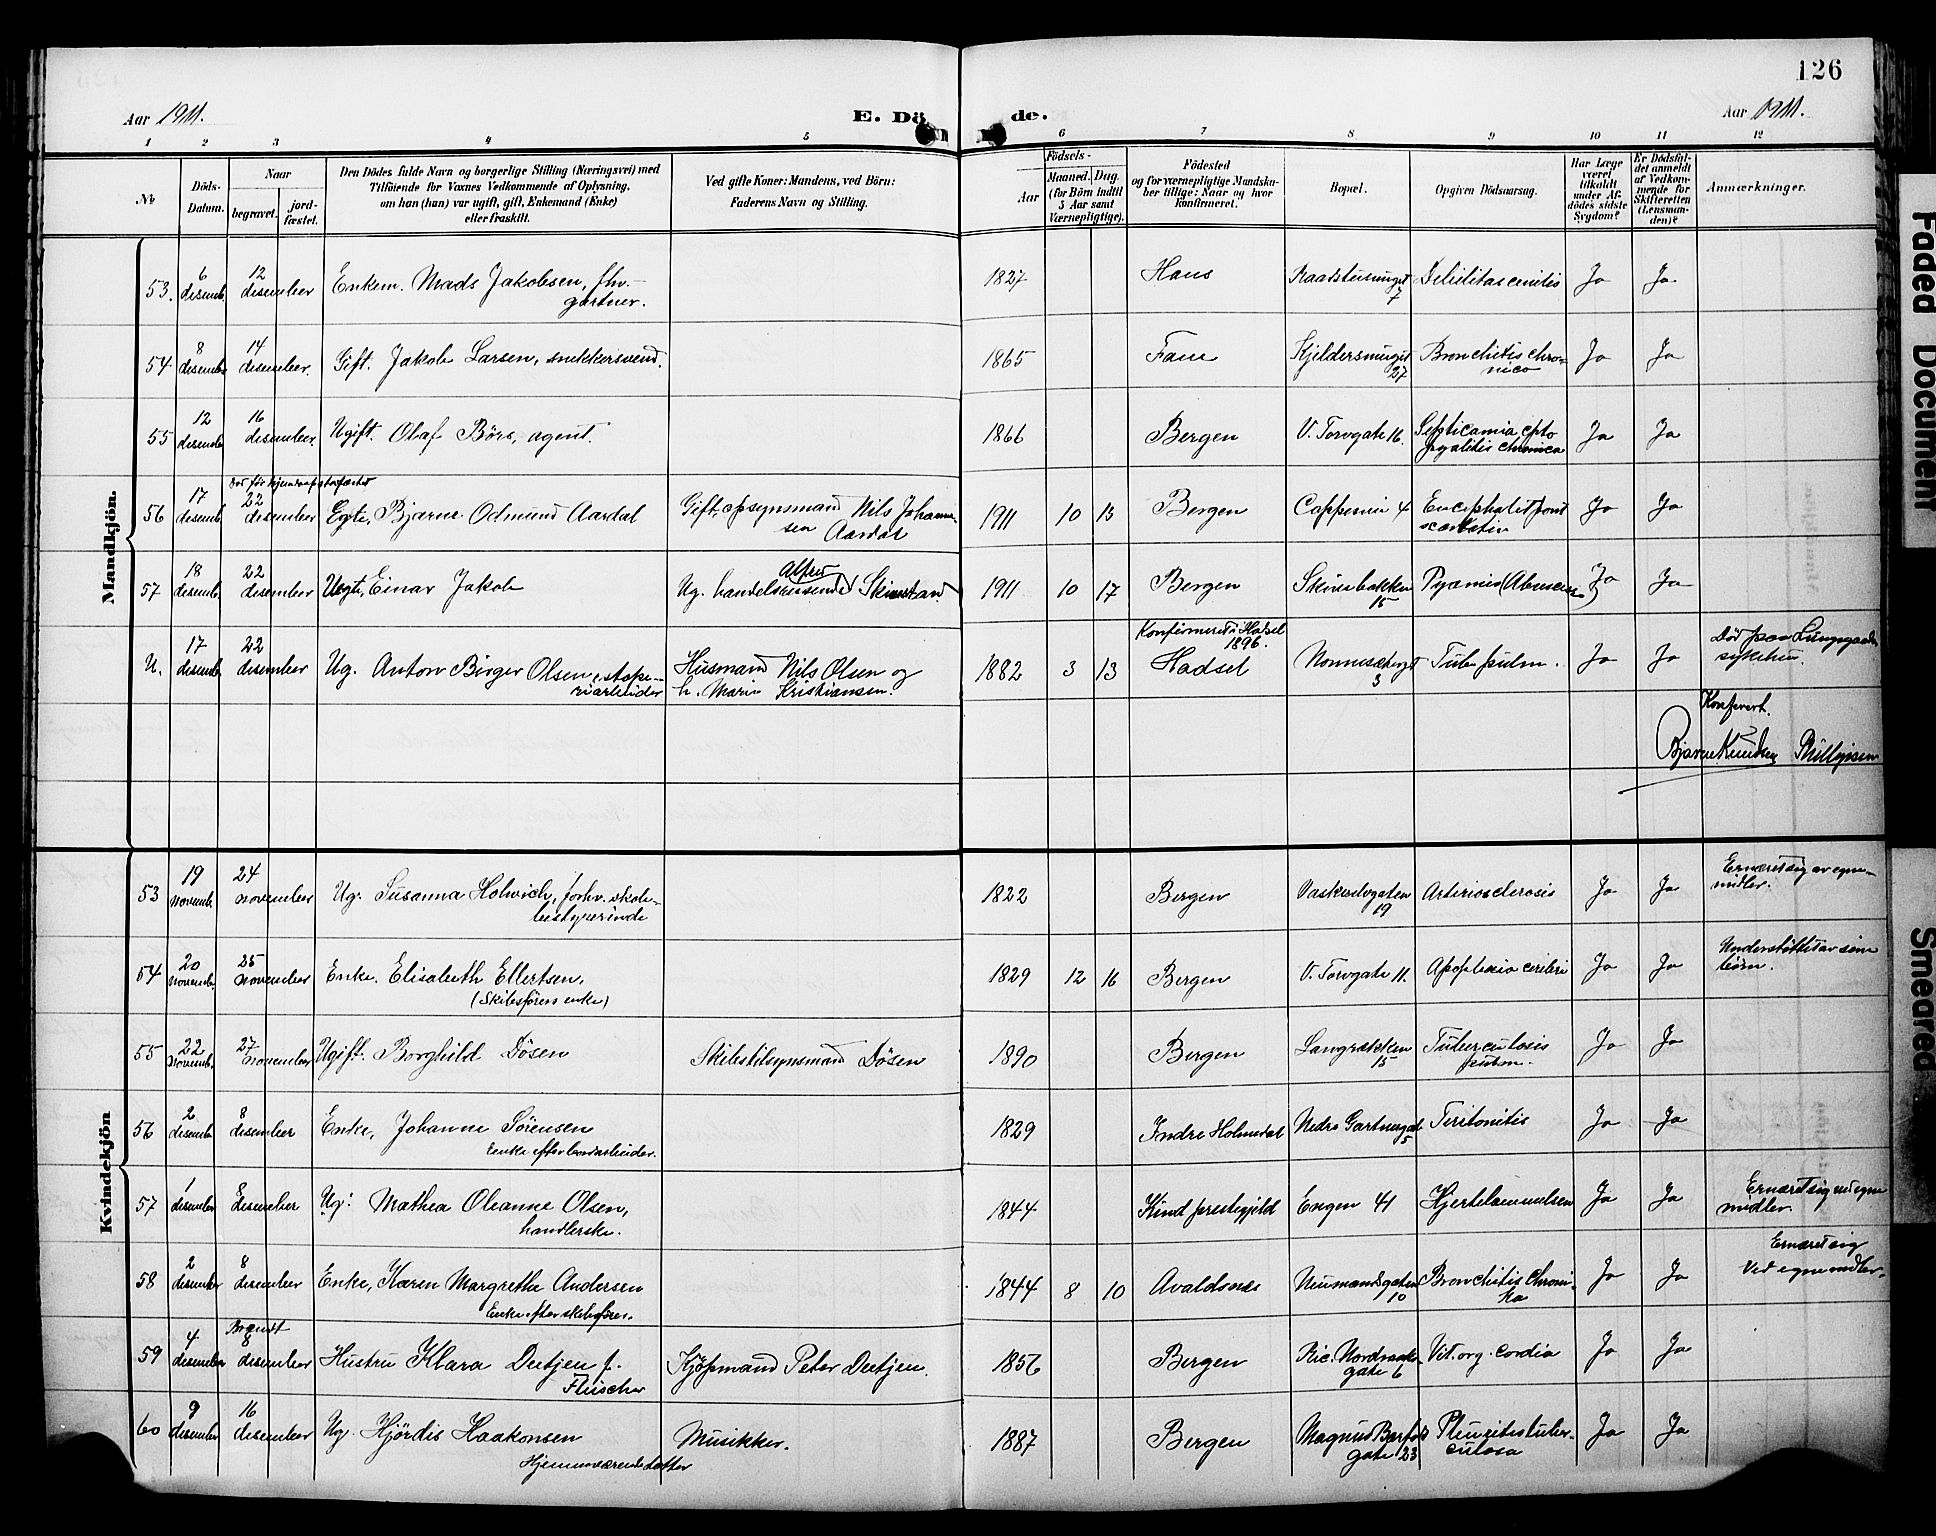 126
Aar 1911. E. Dö de. Aar 1911.
1 2 3 4 5 6 7 8 9 10 11 12
No
Döds-
Datum.
Naar
begravet.
jord-
fæstet.
Den Dödes fulde Navn og borgerlige Stilling (Næringsvei) med
Tilföiende for Voxnes Vedkommende af Oplysning,
om han (hun) var ugift, gift, Enkemand (Enke)
eller fraskilt.
Ved gifte Koner: Mandens, ved Börn:
Faderens Navn og Stilling.
Födsels-
Aar
Maaned. Dag.
(for Börn indtil
5 Aar samt
Værnepligtige).
Födested
og for værnepligtige Mandska-
ber tillige: Naar og hvor
konfirmeret.
Bopæl.
Opgiven Dödsaarsag.
Har Læge
været
tilkaldt
under Af-
dödes sidste
Sygdom?
Er Dödsfal-
det anmeldt
af Vedkom-
mende for
Skifteretten
(Lensman-
den)?
Anmærkninger.
Mandkjön.
53. 6 desemb. 12 desember Enkem. Mads Jakobsen, fhv. gartner. 1827 Haus Raadstusmuget 7 Debilitas cenilis Ja Ja
54 8 desember 14 desember. Gift. Jakob Larsen, snekkersvend. 1865 Fane Kjeldersmuget 27 Bronchitis chronica Ja Ja
55 12 desemb. 16 desember. Ugift. Olaf Börs, agent. 1866 Bergen V. Torvgate 16. Septicamia chronica Ja Ja
56 17 desemb. 22 desember Egte, Bjarne Odmund Aardal Gift, opsynsmand Nils Johannesen Aardal 1911 10 13 Bergen Cappesmu 4 Encephalit scarlatin Ja Ja
57 18 desemb. 22 desember Uegte, Einar Jakob Ug. handelsreisende Alfred 1911 10 17 Bergen Skivebakken 15 Pyæmia Ja Ja
U. 17 desemb. 22 desember Ug. Anton Birger Olsen, støperiarbeider Husmand Nils Olsen og h. Marie Kristiansen. 1882 3 13 Konfirmeret i Hadsel 1896. Hadsel 3 Tub. pulm. Ja Ja Död paa Lungegaards sykehus.
Konfevert.
Bjarne Knudsen Phillipsen
Kvindekjön
53 19 novemb. 24 november Ug. Susanna Holwich, forhv. skolebestyrerinde 1822 Bergen Vaskerelvgaten 19 Arteriosclerosis Ja Ja Ernæret sig av egne midler.
54 20 novemb. 25 november Enke. Elisabeth Ellertsen, (Skibsførers enke) 1829 12 16 Bergen V. Torvgate 11. Apoplexia cerebri Ja Ja Understøttet av sine børn.
55 22 novemb. 27 november Ugift. Borghild Døsen Skibstilsynsmand Døsen 1890 Bergen Langrækken 15 Tuberculosis pulm. Ja Ja
56 2 desemb. 8 desember Enke, Johanne Sørensen Enke efter bordarbeider. 1829 Indre Holmedal Nedre Gartnergat 5 Peritonitis Ja Ja
57 1 desember 8 desember Ug: Mathea Oleanne Olsen, handlerske. 1844 Kind prestegjeld Engen 41 Hjertelammelsen Ja Ja Ernæret sig ved egne midler.
58 2 desember 8 desember Enke, Karen Margrethe Andersen Enke efter skibsfører. 1844 8 10 Avaldsnes Neumandsgaten 10 Bronchitis Chronika Ja Ja Ernæret sig Ved egne midler.
59 4 desember Brændt 8 desember Hustru Klara Deetjen f. Fleischer Kjøpmand Peter Deetjen. 1856 Bergen Ric. Nordraaks gate 6 Vit. org. cordia Ja Ja
60 9 desember 16 desember Ug. Hjördis Haakonsen Hjemmeværende datter Musikker. 1887 Bergen Magnus Barfods gate 23 Pleuritis tuberculosa Ja Ja
Faded Document
Smeared